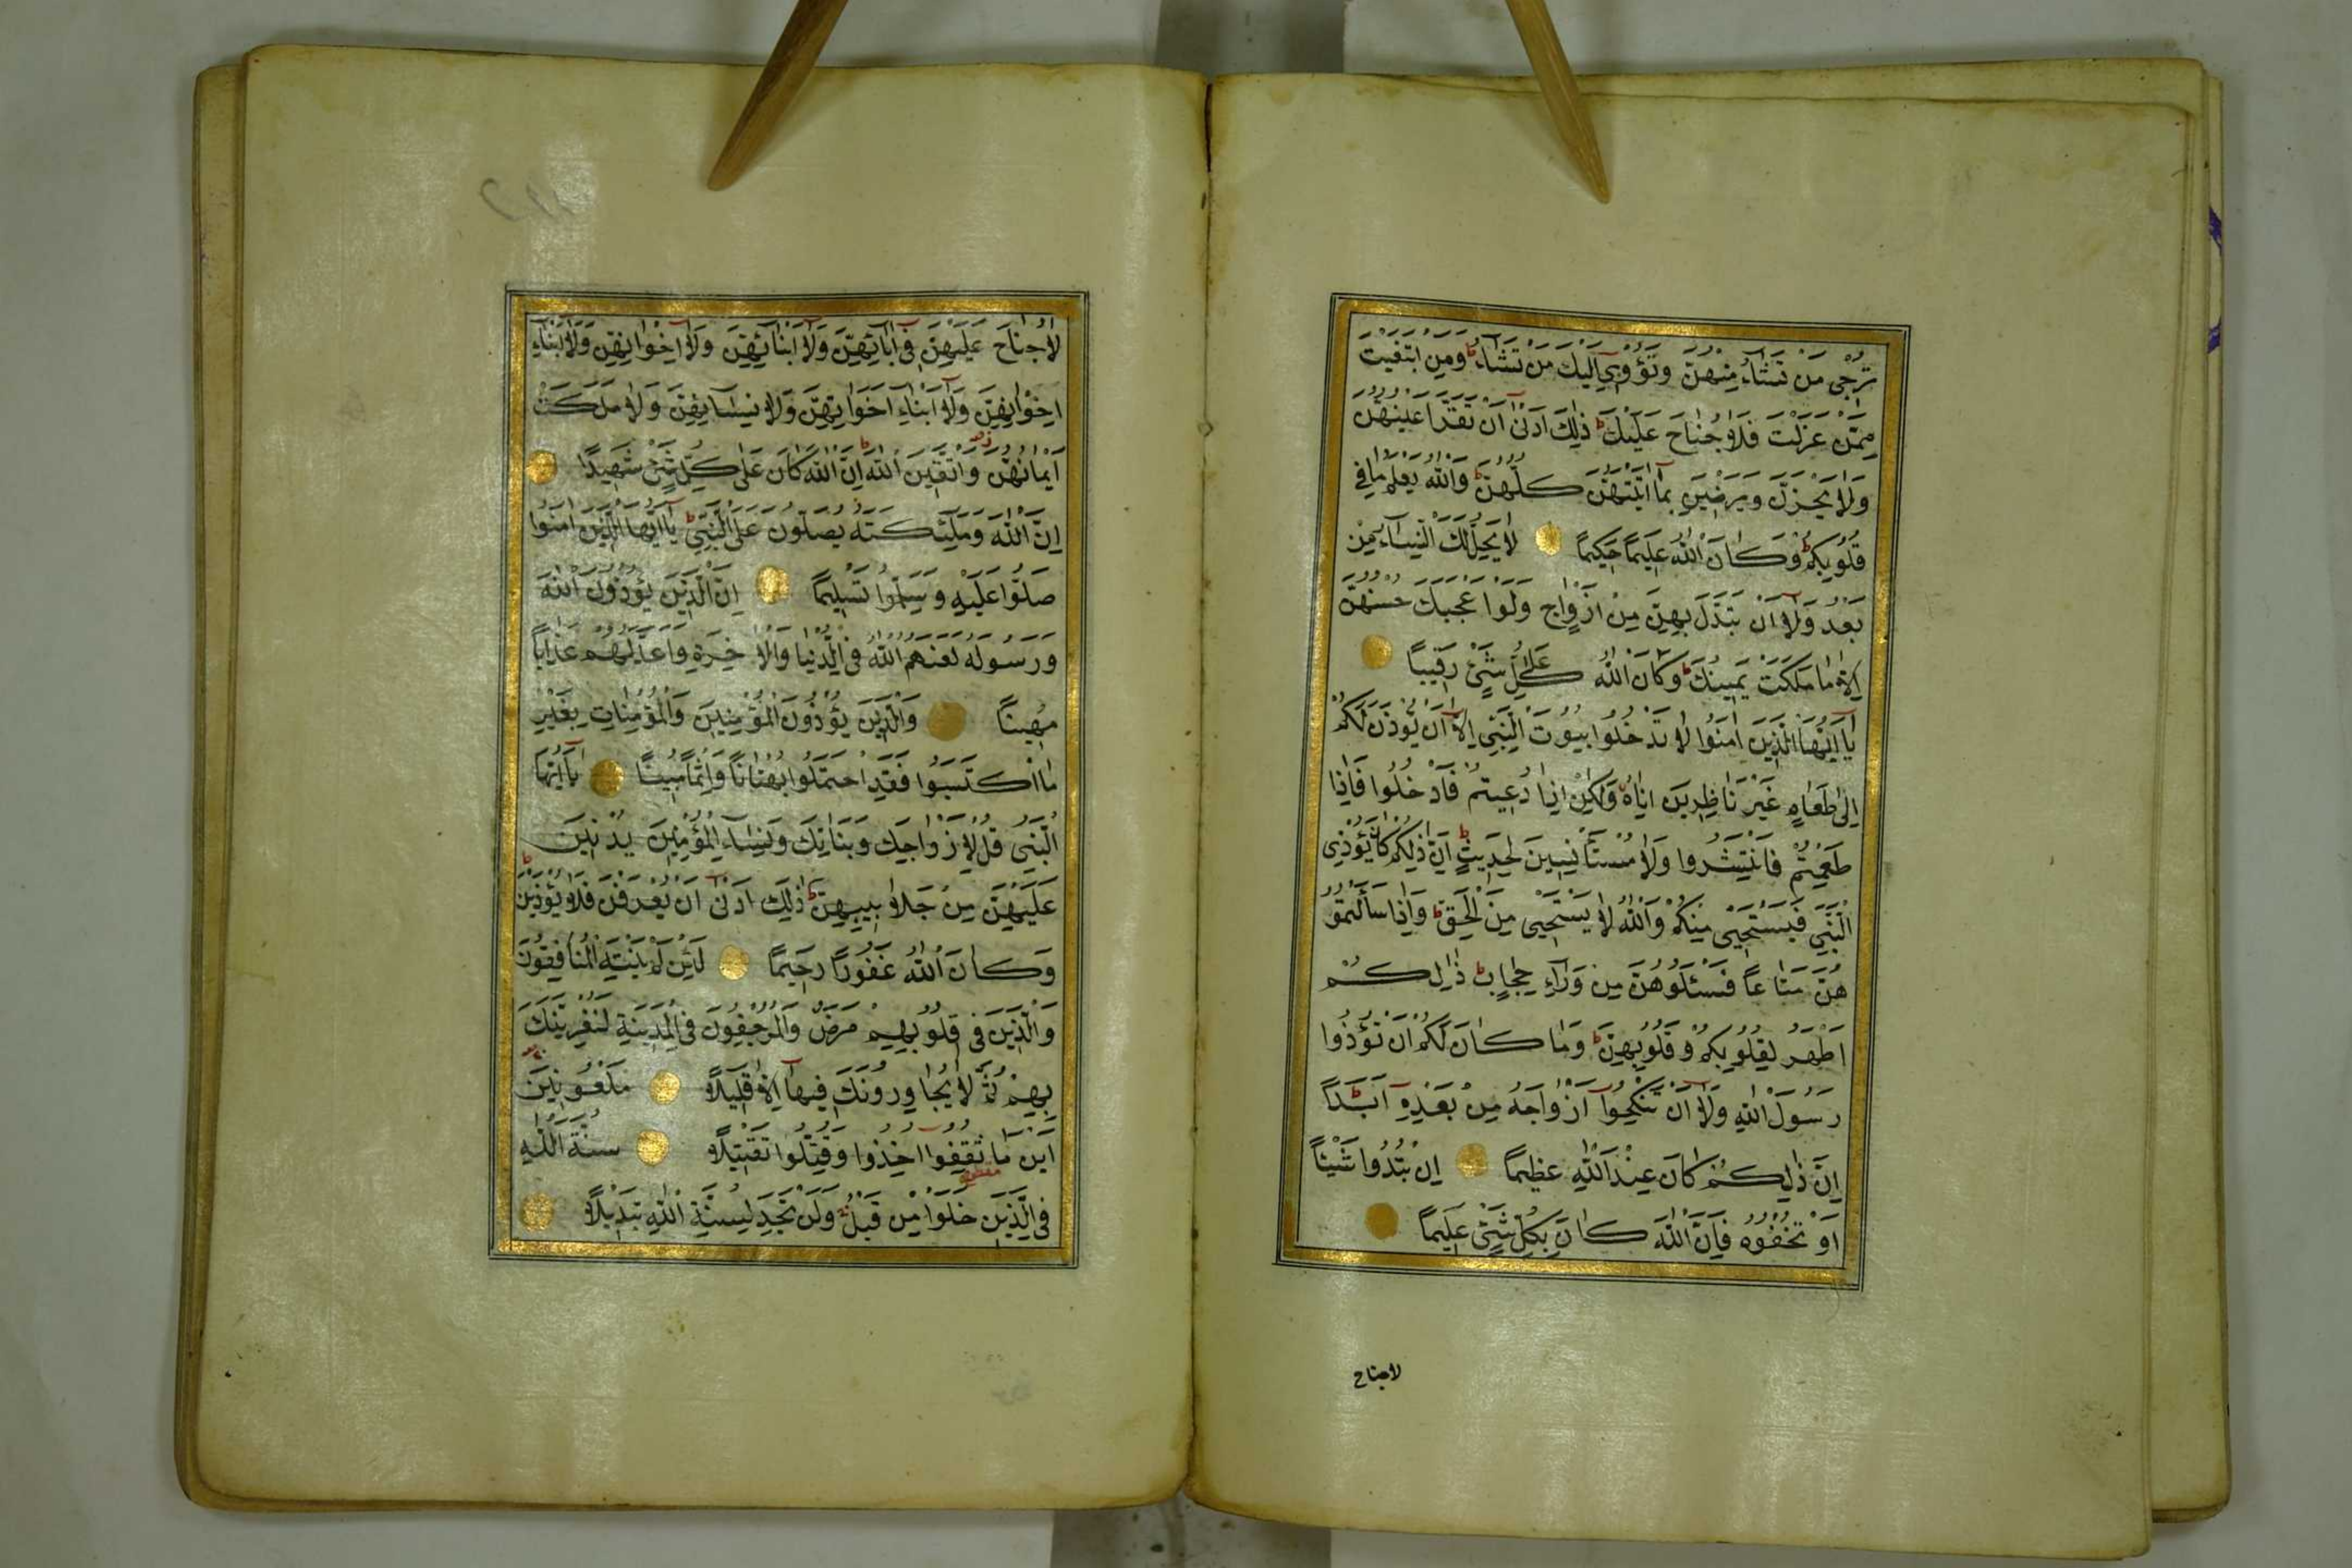 تُرْجِى مَنْ تَشَاءُ مِنْهُنَّ وَتُؤْوِى اِلَيْكَ مَنْ تَشَاءُ ط وَمَنِ ابْتَغَيْتَ
مِمَّنْ عَزَلْتَ فَلَا جُنَاحَ عَلَيْكَ ط ذٰلِكَ اَدْنٰى اَنْ تَقَرَّ اَعْيُنُهُنَّ
وَلَا يَحْزَنَّ وَيَرْضَيْنَ بِمَا اٰتَيْتَهُنَّ كُلُّهُنَّ ط وَاللّٰهُ يَعْلَمُ مَا فِى
قُلُوبِكُمْ ط وَكَانَ اللّٰهُ عَلِيمًا حَكِيمًا لَا يَحِلُّ لَكَ النِّسَاءُ مِنْ
بَعْدُ وَلَا اَنْ تَبَدَّلَ بِهِنَّ مِنْ اَزْوَاجٍ وَلَوْ اَعْجَبَكَ حُسْنُهُنَّ
اِلَّا مَا مَلَكَتْ يَمِينُكَ ط وَكَانَ اللّٰهُ عَلٰى كُلِّ شَىْءٍ رَقِيبًا
يَا اَيُّهَا الَّذِينَ اٰمَنُوا لَا تَدْخُلُوا بُيُوتَ النَّبِىِّ اِلَّا اَنْ يُؤْذَنَ لَكُمْ
اِلٰى طَعَامٍ غَيْرَ نَاظِرِينَ اِنَاهُ وَلٰكِنْ اِذَا دُعِيتُمْ فَادْخُلُوا فَاِذَا
طَعِمْتُمْ فَانْتَشِرُوا وَلَا مُسْتَأْنِسِينَ لِحَدِيثٍ ط اِنَّ ذٰلِكُمْ كَانَ يُؤْذِى
النَّبِىَّ فَيَسْتَحْيِى مِنْكُمْ وَاللّٰهُ لَا يَسْتَحْيِى مِنَ الْحَقِّ ط وَاِذَا سَاَلْتُمُو
هُنَّ مَتَاعًا فَسْئَلُوهُنَّ مِنْ وَرَاءِ حِجَابٍ ط ذٰلِكُمْ
اَطْهَرُ لِقُلُوبِكُمْ وَقُلُوبِهِنَّ ط وَمَا كَانَ لَكُمْ اَنْ تُؤْذُوا
رَسُولَ اللّٰهِ وَلَا اَنْ تَنْكِحُوا اَزْوَاجَهُ مِنْ بَعْدِهِ اَبَدًا ط
اِنَّ ذٰلِكُمْ كَانَ عِنْدَ اللّٰهِ عَظِيمًا اِنْ تُبْدُوا شَيْئًا
اَوْ تُخْفُوهُ فَاِنَّ اللّٰهَ كَانَ بِكُلِّ شَىْءٍ عَلِيمًا
لاجناح
لَا جُنَاحَ عَلَيْهِنَّ فِى اٰبَائِهِنَّ وَلَا اَبْنَائِهِنَّ وَلَا اِخْوَانِهِنَّ وَلَا اَبْنَاءِ
اِخْوَانِهِنَّ وَلَا اَبْنَاءِ اَخَوَاتِهِنَّ وَلَا نِسَائِهِنَّ وَلَا مَا مَلَكَتْ
اَيْمَانُهُنَّ وَاتَّقِينَ اللّٰهَ ط اِنَّ اللّٰهَ كَانَ عَلٰى كُلِّ شَىْءٍ شَهِيدًا
اِنَّ اللّٰهَ وَمَلٰئِكَتَهُ يُصَلُّونَ عَلَى النَّبِىِّ ط يَا اَيُّهَا الَّذِينَ اٰمَنُوا
صَلُّوا عَلَيْهِ وَسَلِّمُوا تَسْلِيمًا اِنَّ الَّذِينَ يُؤْذُونَ اللّٰهَ
وَرَسُولَهُ لَعَنَهُمُ اللّٰهُ فِى الدُّنْيَا وَالْاٰخِرَةِ وَاَعَدَّ لَهُمْ عَذَابًا
مُهِينًا وَالَّذِينَ يُؤْذُونَ الْمُؤْمِنِينَ وَالْمُؤْمِنَاتِ بِغَيْرِ
مَا اكْتَسَبُوا فَقَدِ احْتَمَلُوا بُهْتَانًا وَاِثْمًا مُبِينًا يَا اَيُّهَا
النَّبِىُّ قُلْ لِاَزْوَاجِكَ وَبَنَاتِكَ وَنِسَاءِ الْمُؤْمِنِينَ يُدْنِينَ
عَلَيْهِنَّ مِنْ جَلَابِيبِهِنَّ ط ذٰلِكَ اَدْنٰى اَنْ يُعْرَفْنَ فَلَا يُؤْذَيْنَ ط
وَكَانَ اللّٰهُ غَفُورًا رَحِيمًا لَئِنْ لَمْ يَنْتَهِ الْمُنَافِقُونَ
وَالَّذِينَ فِى قُلُوبِهِمْ مَرَضٌ وَالْمُرْجِفُونَ فِى الْمَدِينَةِ لَنُغْرِيَنَّكَ
بِهِمْ ثُمَّ لَا يُجَاوِرُونَكَ فِيهَا اِلَّا قَلِيلًا مَلْعُونِينَ
اَيْنَ مَا ثُقِفُوا اُخِذُوا وَقُتِّلُوا تَقْتِيلًا سُنَّةَ اللّٰهِ
فِى الَّذِينَ خَلَوْا مِنْ قَبْلُ وَلَنْ تَجِدَ لِسُنَّةِ اللّٰهِ تَبْدِيلًا